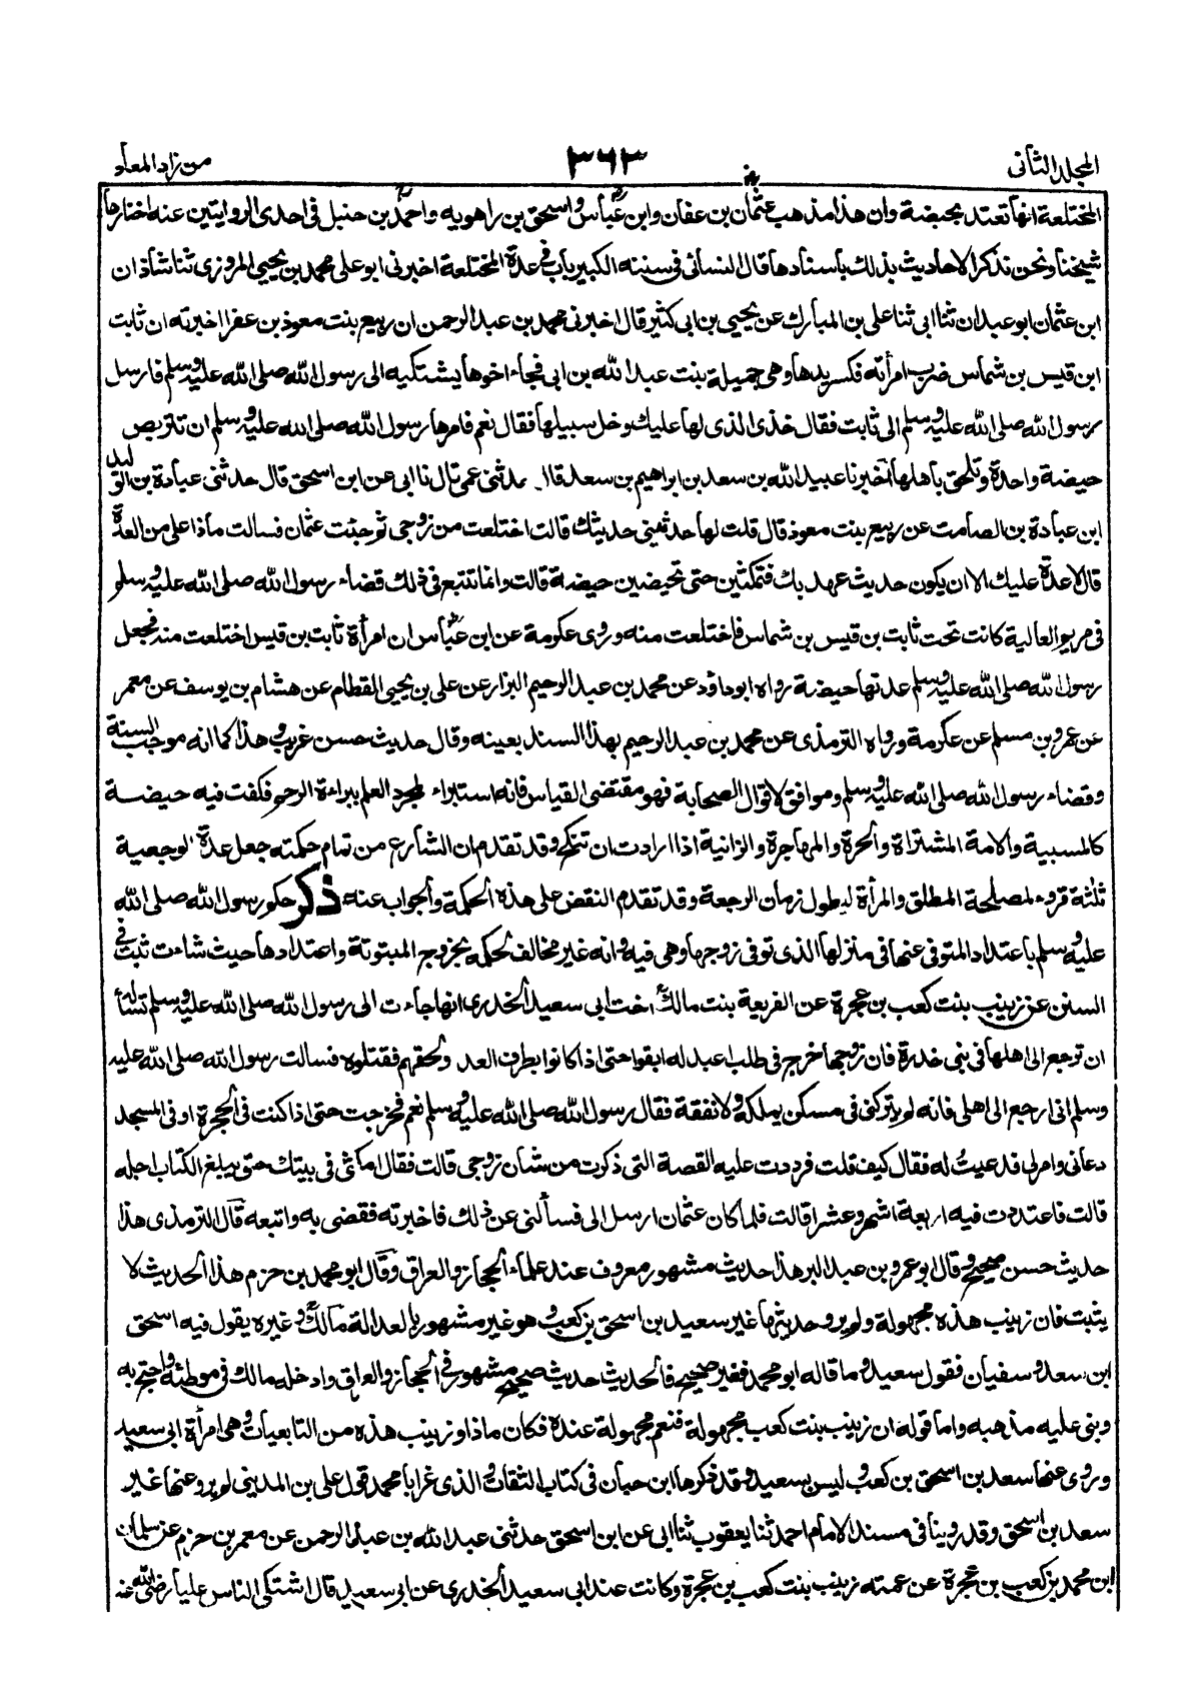 المجلد الثانى
٣٦٣
من زاد المعاد
المختلعة انها تعتد بحيضة وان هذا مذهب عثمان بن عفان وابن عباس واسحق بن راهويه واحمد بن حنبل فى احدى الروايتين عنه اختارها
شيخنا ونحن نذكر الاحاديث بذلك باسنادها قال النسائى فى سننه الكبير باب فى عدة المختلعة اخبرنى ابو على محمد بن يحيى المروزى ثنا شاذان
ابن عثمان ابو عبدان ثنا ابى ثنا على بن المبارك عن يحيى بن ابى كثير قال اخبرنى محمد بن عبد الرحمن ان ربيع بنت معوذ بن عفرا اخبرته ان ثابت
ابن قيس بن شماس ضرب امرأته فكسر يدها وهى جميلة بنت عبد الله بن ابى فجاء اخوها يشتكيه الى رسول الله صلى الله عليه وسلم فارسل
رسول الله صلى الله عليه وسلم الى ثابت فقال خذ الذى لها عليك وخل سبيلها فقال نعم فامرها رسول الله صلى الله عليه وسلم ان تتربص
حيضة واحدة وتلحق باهلها اخبرنا عبيد الله بن سعد بن ابراهيم بن سعد قال حدثنى عمى قال نا ابى عن ابن اسحق قال حدثنى عبادة بن الوليد
ابن عبادة بن الصامت عن ربيع بنت معوذ قال قلت لها حدثينى حديثك قالت اختلعت من زوجى ثم جئت عثمان فسالت ماذا على من العدة
قال لا عدة عليك الا ان يكون حديث عهد بك فتمكثين حتى تحيضين حيضة قالت وانما تتبع فى ذلك قضاء رسول الله صلى الله عليه وسلم
فى مريم العالية كانت تحت ثابت بن قيس بن شماس فاختلعت منه وروى عكرمة عن ابن عباس ان امرأة ثابت بن قيس اختلعت منه فجعل
رسول الله صلى الله عليه وسلم عدتها حيضة رواه ابوداؤد عن محمد بن عبد الرحيم البزار عن على بن يحيى القطام عن هشام بن يوسف عن معمر
عن عمرو بن مسلم عن عكرمة ورواه الترمذى عن محمد بن عبد الرحيم بهذا السند بعينه وقال حديث حسن غريب وهذا كما انه موجب السنة
وقضاء رسول الله صلى الله عليه وسلم وموافق لاقوال الصحابة فهو مقتضى القياس فانه استبراء لمجرد العلم ببراءة الرحم فكفت فيه حيضة
كالمسبية والامة المشتراة والحرة والمهاجرة والزانية اذا ارادت ان تنكح وقد تقدم ان الشارع من تمام حكمته جعل عدة الرجعية
ثلثة قروء لمصلحة المطلق والمرأة ليطول زمان الرجعة وقد تقدم النقض على هذه الحكمة والجواب عنه ذكر حكم رسول الله صلى الله
عليه وسلم باعتداد المتوفى عنها فى منزلها الذى توفى زوجها وهى فيه وانه غير مخالف لحكمه بخروج المبتوتة واعتدادها حيث شاءت ثبت فى
السنن عن زينب بنت كعب بن عجرة عن الفريعة بنت مالك اخت ابى سعيد الخدرى انها جاءت الى رسول الله صلى الله عليه وسلم تسأله
ان ترجع الى اهلها فى بنى خدرة فان زوجها خرج فى طلب اعبد له ابقوا حتى اذا كانوا بطرف القدوم لحقهم فقتلوه فسالت رسول الله صلى الله عليه
وسلم انى ارجع الى اهلى فانه لم يتركنى فى مسكن يملكه ولا نفقة فقال رسول الله صلى الله عليه وسلم نعم فخرجت حتى اذا كنت فى الحجرة او فى المسجد
دعانى وامر لى فدعيت له فقال كيف قلت فرددت عليه القصة التى ذكرت من شان زوجى قالت فقال امكثى فى بيتك حتى يبلغ الكتاب اجله
قالت فاعتددت فيه اربعة اشهر وعشرا قالت فلما كان عثمان ارسل الى فسألنى عن ذلك فاخبرته فقضى به واتبعه قال الترمذى هذا
حديث حسن صحيح وقال ابو عمرو بن عبد البر هذا حديث مشهور معروف عند علماء الحجاز والعراق وقال ابو محمد بن حزم هذا الحديث لا
يثبت فان زينب هذه مجهولة ولم يرو حديثها غير سعيد بن اسحق بن كعب وهو غير مشهور بالعدالة مالك وغيره يقول فيه اسحق
ابن سعد وسفيان فقول سعيد وما قاله ابو محمد فغير صحيح فالحديث حديث صحيح مشهور فى الحجاز والعراق وادخله مالك فى موطئه واحتج به
وبنى عليه مذهبه واما قوله ان زينب بنت كعب مجهولة فنعم مجهولة عنده فكان ماذا وزينب هذه من التابعيات وهى امرأة ابى سعيد
وروى عنها سعد بن اسحق بن كعب وليس بسعيد وقد ذكرها ابن حبان فى كتاب الثقات والذى غر ابا محمد قول على بن المدينى لم يرو عنها غير
سعد بن اسحق وقد روينا فى مسند الامام احمد ثنا يعقوب ثنا ابى عن ابن اسحق حدثنى عبد الله بن عبد الرحمن عن معمر بن حزم عن سلمان
ابن محمد بن كعب بن عجرة عن عمته زينب بنت كعب بن عجرة وكانت عند ابى سعيد الخدرى عن ابى سعيد قال اشتكى الناس عليا رضى الله عنه